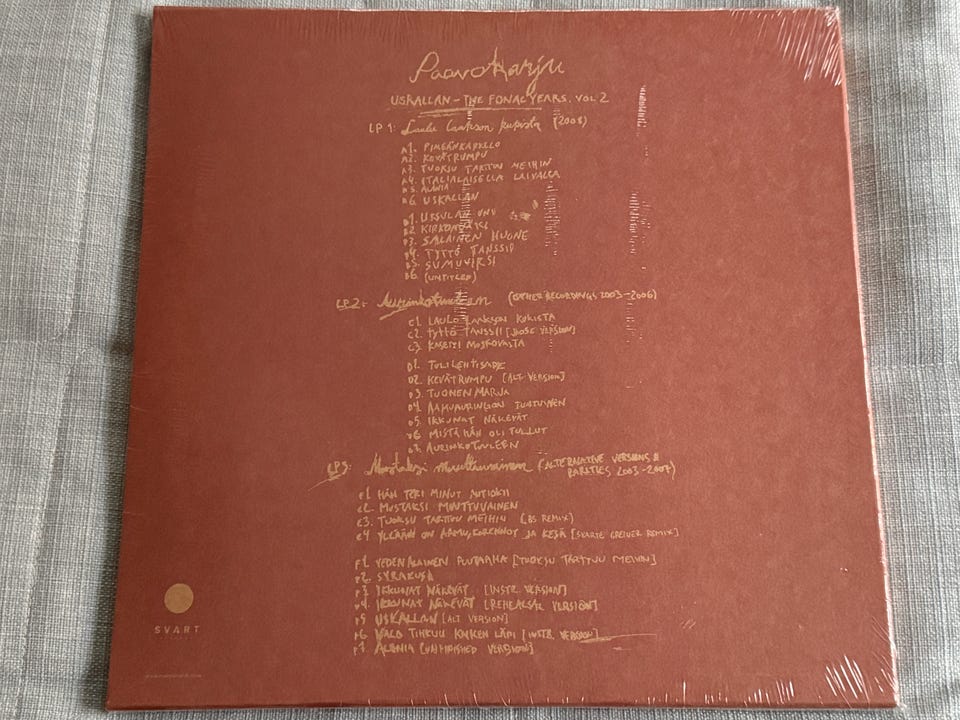 Paavoharju
USKALLAN – THE FONAL YEARS. VOL 2
LP 1: Laulu laakson kukista (2008)
A1. PIMEÄNKARKELO
A2. KEVÄTRUMPU
A3. TUOKSU TARTTUU MEIHIN
A4. ITALIALAISELLA LAIVALLA
A5. ALANIA
A6. USKALLAN
B1. URSULAN UNI
B2. KIRKONVÄKI
B3. SALAINEN HUONE
B4. TYTTÖ TANSSII
B5. SUMUVIRSI
B6. (UNTITLED)
LP2: (OTHER RECORDINGS 2003–2006)
C1. LAULU LAAKSON KUKISTA
C2. TYTTÖ TANSSII [JOOSE VERSION]
C3. KASETTI MOSKOVASTA
D1. TULILEHTISADE
D2. KEVÄTRUMPU [ALT. VERSION]
D3. TUONEN MARJA
D4. AAMUAURINGON TUNTUINEN
D5. IKKUNAT NÄKEVÄT
D6. MISTÄ HÄN OLI TULLUT
D7. AURINKOTUULEEN
LP3: Mustaksi muuttuvainen (ALTERNATIVE VERSIONS &
RARITIES 2003–2007)
E1. HÄN TEKI MINUT AUTIOKSI
E2. MUSTAKSI MUUTTUVAINEN
E3. TUOKSU TARTTUU MEIHIN (BS REMIX)
E4 YLLÄÄNI ON AAMU, KORENNOT JA KESÄ [SVARTE GREINER REMIX]
F1. VEDENALAINEN PUUTARHA [TUOKSU TARTTUU MEIHIN]
F2. SYRAKUSA
F3. IKKUNAT NÄKEVÄT [INSTR. VERSION]
F4. IKKUNAT NÄKEVÄT [REHEARSAL VERSION]
F5 USKALLAN [ALT VERSION]
F6 VALO TIHKUU KAIKEN LÄPI [INSTR. VERSION]
F7. ALANIA [UNFINISHED VERSION]
SVART